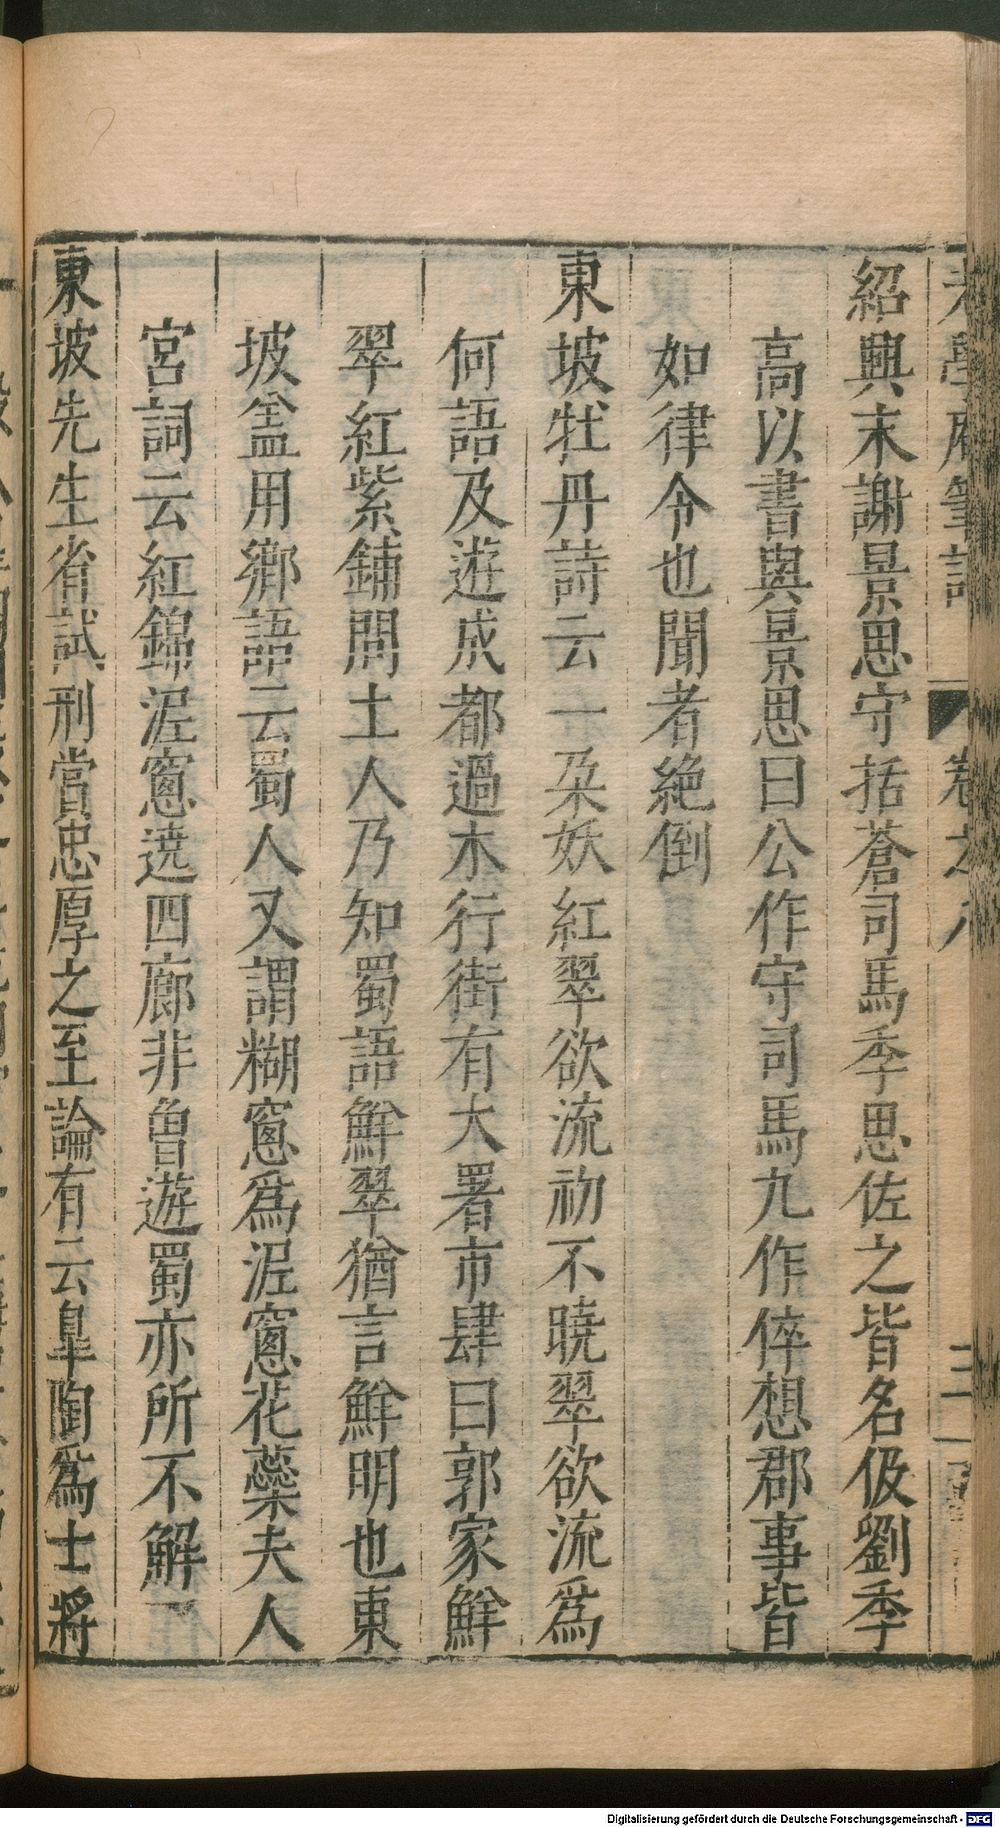 老學庵筆記 卷之八 二
紹興末謝景思守括蒼司馬季思佐之皆名伋劉季
高以書與景思曰公作守司馬九作倅想郡事皆
如律令也聞者絶倒
東坡牡丹詩云一朶妖紅翠欲流初不曉翠欲流爲
何語及遊成都過木行街有大署市肆曰郭家鮮
翠紅紫鋪問土人乃知蜀語鮮翠猶言鮮明也東
坡盖用鄉語云蜀人又謂糊窻爲泥窻花蘂夫人
宮詞云紅錦泥窻遶四廊非曾遊蜀亦所不解
東坡先生省試刑賞忠厚之至論有云臯陶爲士將
Digitalisierung gefördert durch die Deutsche Forschungsgemeinschaft - DFG